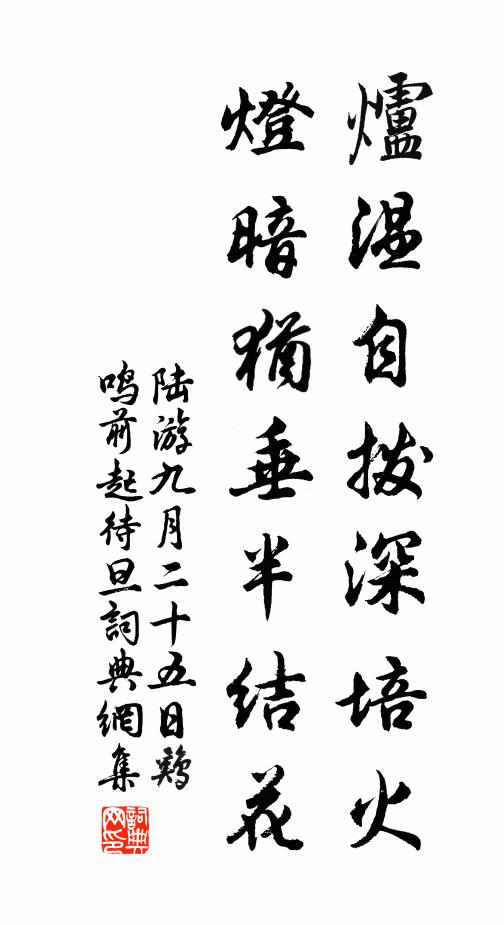 爐温自撥深培火
燈暗猶垂半结花
陆游九月二十五日鷄
鸣前起待旦詞典網集
詞典
网印